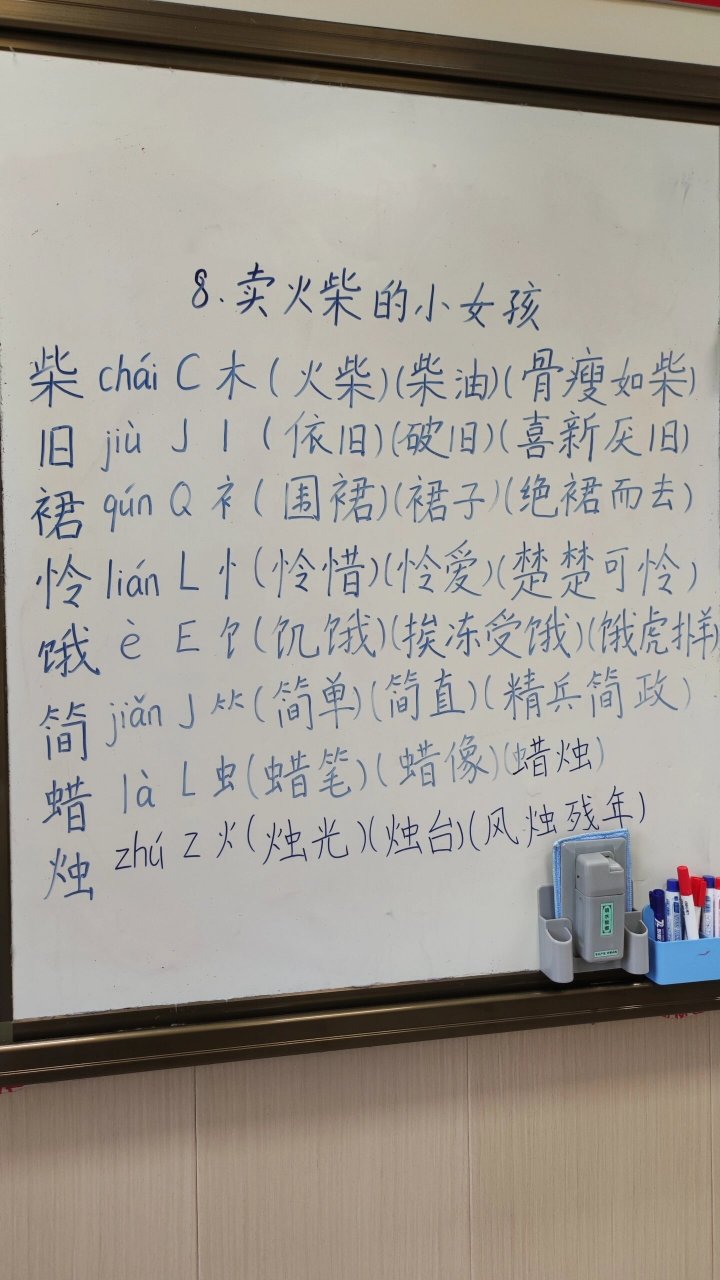 8.卖火柴的小女孩
柴 chái C 木(火柴)(柴油)(骨瘦如柴)
旧 jiù J 丨(依旧)(破旧)(喜新厌旧)
裙 qún Q 衤(围裙)(裙子)(绝裙而去)
怜 lián L 忄(怜惜)(怜爱)(楚楚可怜)
饿 è E 饣(饥饿)(挨冻受饿)(饿虎扑羊)
简 jiǎn J ⺮(简单)(简直)(精兵简政)
蜡 là L 虫(蜡笔)(蜡像)(蜡烛)
烛 zhú Z 火(烛光)(烛台)(风烛残年)